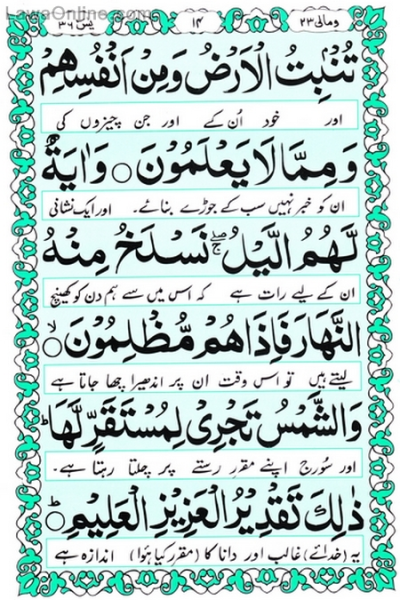 LawaOnline.com
ومالی ۲۳ ۱۴ یٰس ۳۶
تُنْۢبِتُ الْاَرْضُ وَمِنْ اَنْفُسِهِمْ
اور خود اُن کے اور جن چیزوں کی
وَمِمَّا لَا يَعْلَمُوْنَ ○ وَاٰيَةٌ
ان کو خبر نہیں سب کے جوڑے بنائے۔ اور ایک نشانی
لَّهُمُ الَّيْلُ ۖۚ نَسْلَخُ مِنْهُ
ان کے لیے رات ہے کہ اس میں سے ہم دن کو کھینچ
النَّهَارَ فَاِذَا هُمْ مُّظْلِمُوْنَ ○ۙ
لیتے ہیں تو اس وقت ان پر اندھیرا چھا جاتا ہے
وَالشَّمْسُ تَجْرِىْ لِمُسْتَقَرٍّ لَّهَا ؕ
اور سُورج اپنے مقرر رستے پر چلتا رہتا ہے۔
ذٰلِكَ تَقْدِيْرُ الْعَزِيْزِ الْعَلِيْمِ ○ؕ
یہ (خدائے) غالب اور دانا کا (مقرر کیا ہُوا) اندازہ ہے